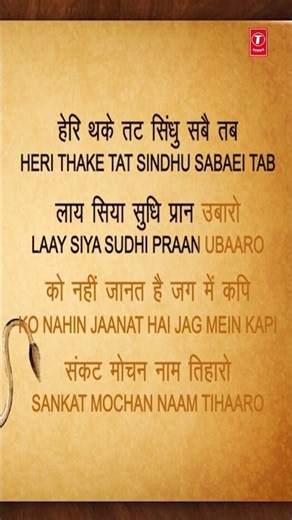 T
T-Series
हेरि थके तट सिंधु सबै तब
HERI THAKE TAT SINDHU SABAEI TAB
लाय सिया सुधि प्रान उबारो
LAAY SIYA SUDHI PRAAN UBAARO
को नहीं जानत है जग में कपि
KO NAHIN JAANAT HAI JAG MEIN KAPI
संकट मोचन नाम तिहारो
SANKAT MOCHAN NAAM TIHAARO